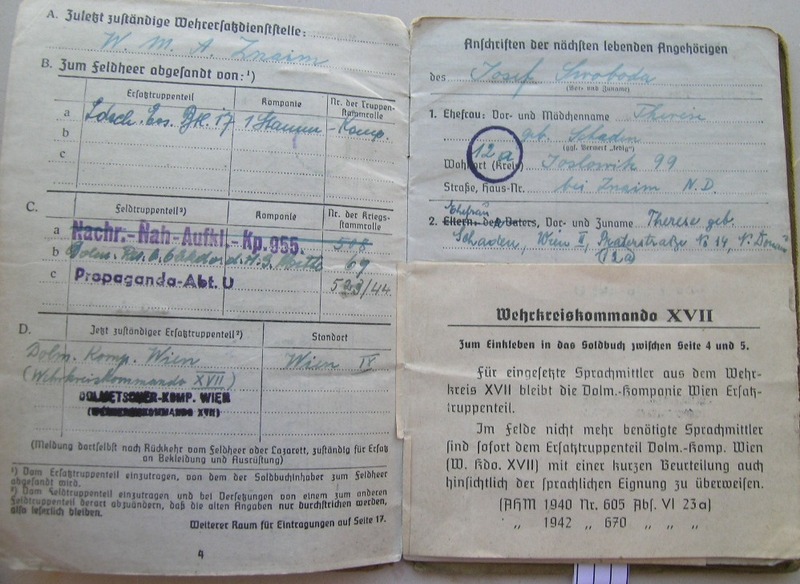 A. Zuletzt zuständige Wehrersatzdienststelle:
W. M. A. Znaim
B. Zum Feldheer abgesandt von:¹)
Ersatztruppenteil
Kompanie
Nr. der Truppenstammrolle
a
17 1 Stamm-Komp.
b
c
C.
Feldtruppenteil²)
Kompanie
Nr. der Kriegsstammrolle
a Nachr.-Nah-Aufkl.-Kp. 955.
b 69
c Propaganda-Abt. U
D.
Jetzt zuständiger Ersatztruppenteil²)
Standort
Dolm. Komp. Wien
Wien IV
(Wehrkreiskommando XVII)
DOLMETSCHER-KOMP. WIEN
(WEHRKREISKOMMANDO XVII)
(Meldung dortselbst nach Rückkehr vom Feldheer oder Lazarett, zuständig für Ersatz
an Bekleidung und Ausrüstung)
¹) Vom Ersatztruppenteil einzutragen, von dem der Soldbuchinhaber zum Feldheer
abgesandt wird.
²) Vom Feldtruppenteil einzutragen und bei Versetzungen von einem zum anderen
Feldtruppenteil derart abzuändern, daß die alten Angaben nur durchstrichen werden,
also leserlich bleiben.
Weiterer Raum für Eintragungen auf Seite 17.
4
Anschriften der nächsten lebenden Angehörigen
des Josef Swoboda
(Vor- und Zuname)
1. Ehefrau: Vor- und Mädchenname Therese
geb. Schaden
(ggf. Vermerk „ledig")
12a
Wohnort (Kreis) Joslowitz 99
Straße, Haus-Nr. bei Znaim N.D.
Ehefrau
2. Eltern: des Vaters, Vor- und Zuname Therese geb.
Schaden, Wien II, Praterstraße 14,
(12a)
Wehrkreiskommando XVII
Zum Einkleben in das Soldbuch zwischen Seite 4 und 5.
Für eingesetzte Sprachmittler aus dem Wehr-
kreis XVII bleibt die Dolm.-Kompanie Wien Ersatz-
truppenteil.
Im Felde nicht mehr benötigte Sprachmittler
sind sofort dem Ersatztruppenteil Dolm.-Komp. Wien
(W. Kdo. XVII) mit einer kurzen Beurteilung auch
hinsichtlich der sprachlichen Eignung zu überweisen.
(AHM 1940 Nr. 605 Abs. VI 23a)
„ 1942 „ 670 „ „ „